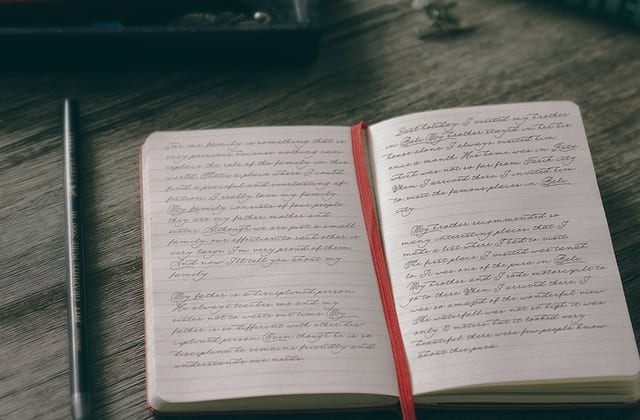 For me family is something that is
very precious because nothing can
replace the role of the family in this
worth. That's a place where I could
find a peaceful and everlasting af
fection. I really love my family.
My family consists of four people
they are my father mother and
sister. Although we are just a small
family, our affection to each other is
very large. I'm very proud of them.
And now I'll tell you about my
family.
My father is a disciplined person.
He always teaches me and my
sister not to waste our time. My
father is so different with other dis
ciplined person. Even though he is so
discipline he remains friendly and
understands our needs.
Last holiday, I visited my brother
in Bali. My brother stayed in her his
house alone. I always visited him
once a month. His home was in Kuta
which was not so far from
When I arrived there, I invited him
to visit the famous places in Bali
city.
My brother recommended so
many interesting places that I
made a list where I had to visit.
The first place I visited was
It was one of the park in Bali.
My brother and I rode motorcycle to
go to there. When I arrived there, I
was so amazed of the wonderful view.
The waterfall was not so high it was
only 10 meters but it looked very
beautiful there were few people know
about this